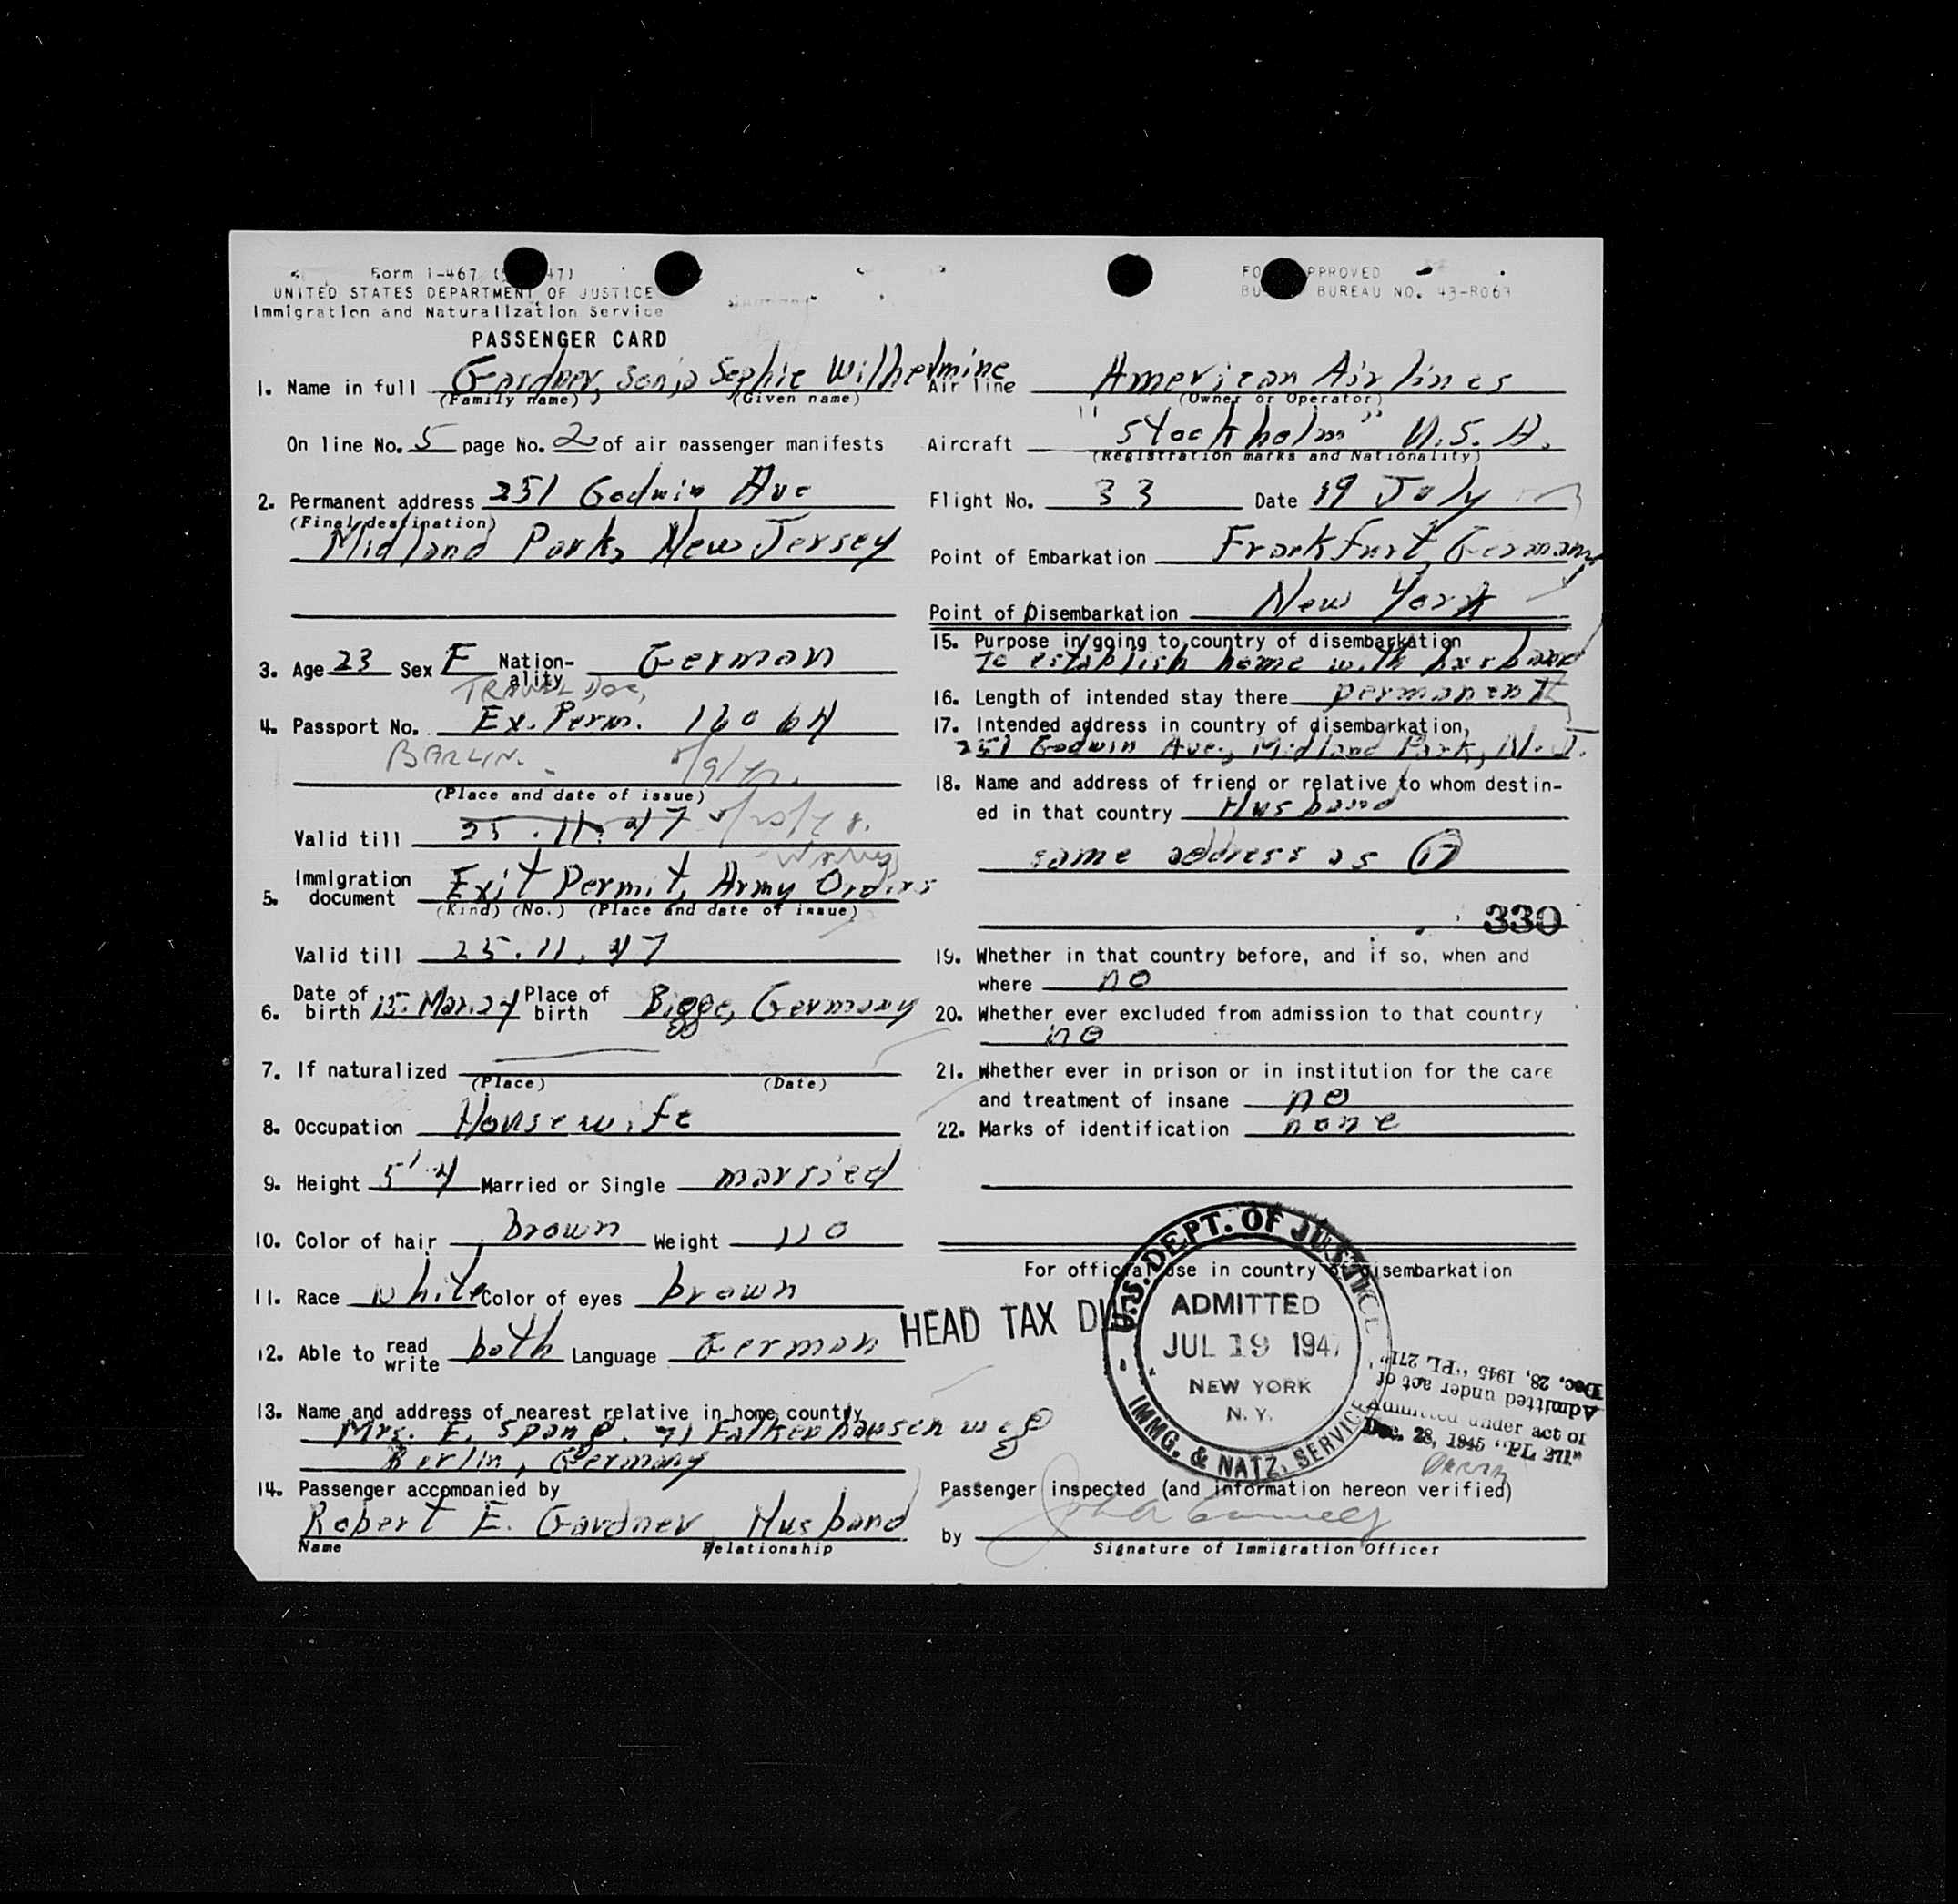 Form I-467 ( 47)
UNITED STATES DEPARTMENT OF JUSTICE
Immigration and Naturalization Service
PASSENGER CARD
1. Name in full Gardner, Sonja Sophie Wilhelmine
(Family name) (Given name)
On line No. 5 page No. 2 of air passenger manifests
2. Permanent address 251 Godwin Ave
(Final destination)
Midland Park, New Jersey
3. Age 23 Sex F Nation-ality German
TRAVEL Doc,
4. Passport No. Ex. Perm. 16064
BERLIN.
(Place and date of issue)
Valid till 25.11.47
5. Immigration document Exit Permit, Army Orders
(Kind) (No.) (Place and date of issue)
Valid till 25.11.47
6. Date of birth 15. Mar. 24 Place of birth Bigge, Germany
7. If naturalized
(Place) (Date)
8. Occupation Housewife
9. Height 5'4 Married or Single married
10. Color of hair brown Weight 110
11. Race white Color of eyes brown
12. Able to read write both Language German
13. Name and address of nearest relative in home country
Mrs. E. Spang. 71 Falkenhausen weg
Berlin, Germany
14. Passenger accompanied by
Robert E. Gardner, Husband
Name Relationship
FO APPROVED
BU BUREAU NO. 43-R069
Air line American Airlines
(Owner or Operator)
Aircraft "Stockholm" U.S.A.
(Registration marks and Nationality)
Flight No. 33 Date 19 July
Point of Embarkation Frankfurt, Germany
Point of Disembarkation New York
15. Purpose in going to country of disembarkation
To establish home with husband
16. Length of intended stay there permanent
17. Intended address in country of disembarkation,
251 Godwin Ave., Midland Park, N.J.
18. Name and address of friend or relative to whom destin-
ed in that country Husband
same address as 17
330
19. Whether in that country before, and if so, when and
where no
20. Whether ever excluded from admission to that country
no
21. Whether ever in prison or in institution for the care
and treatment of insane no
22. Marks of identification none
For official use in country of disembarkation
HEAD TAX DUE
U.S. DEPT. OF JUSTICE
ADMITTED
JUL 19 1947
NEW YORK
N.Y.
IMMG. & NATZ. SERVICE
Admitted under act of
Dec. 28, 1945 "PL 271"
Admitted under act of
Dec. 28, 1945 "PL 271"
Passenger inspected (and information hereon verified)
by
Signature of Immigration Officer